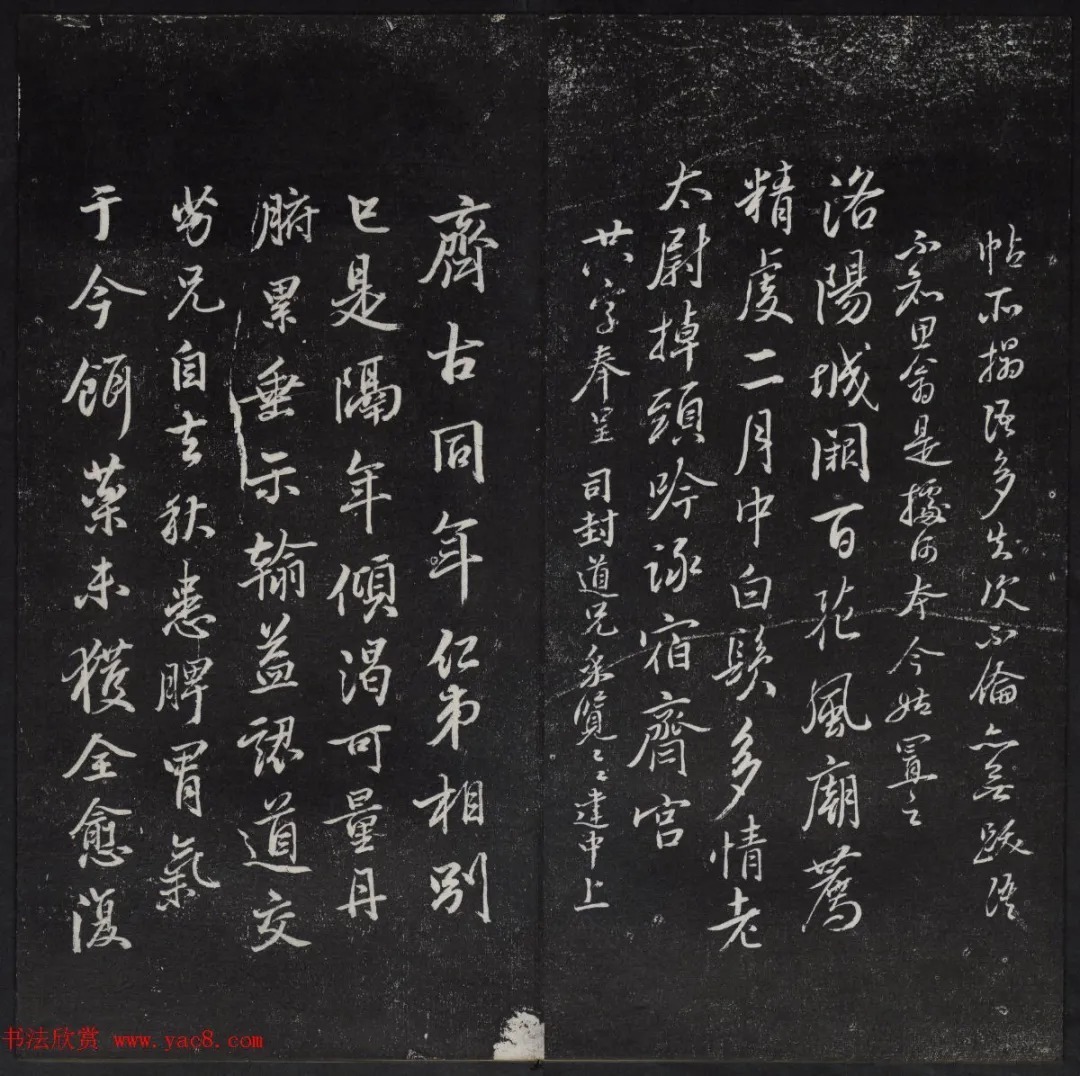 帖不搨語多失次不倫亦無跋語
不知思翁是據何本今姑置之
洛陽城闕百花風廟薦
精虔二月中白鬚多情老
太尉掉頭吟詠宿齋宮
廿八字奉呈司封道兄垂覽〻建中上
齊古同年仁弟相别
已是隔年傾渴可量丹
腑累垂示翰益認道交
勞兄自去秋患脾胃氣
于今餌藥未獲全愈復
书法欣赏 www.yac8.com